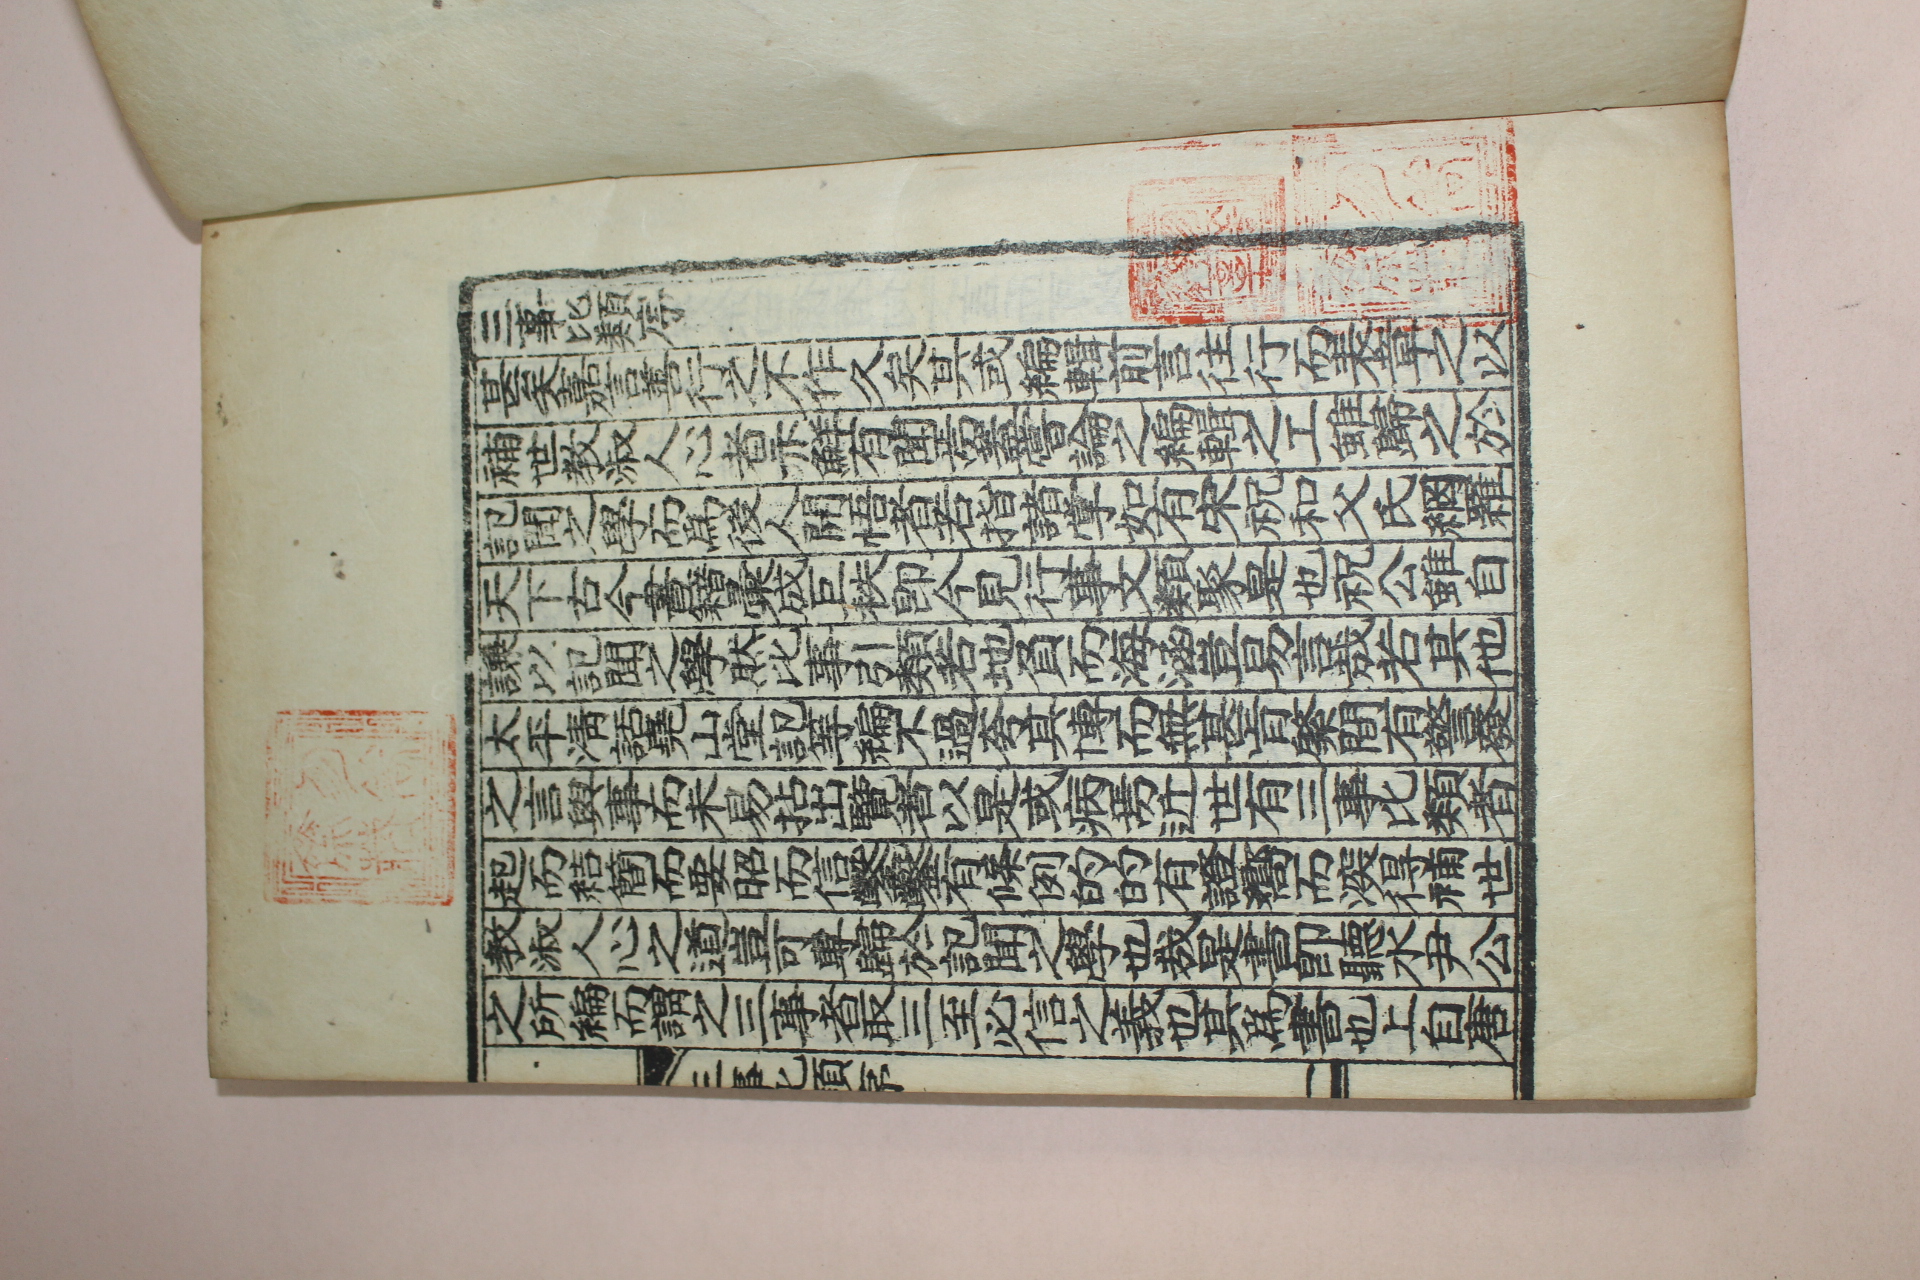 三事比類序
甚矣嘉言善行之不作久矣其或編輯前言往行而表章之以
補世敎淑人心者亦鮮有聞焉蓋嘗論之編輯之工雖歸之於
記聞之學而爲後人開悟者若指諸掌如有宋祝和父氏網羅
天下古今書籍彙成巨秩卽今見行事文類聚是也祝公雖自
謙以記聞之學然比事引類若地負而海涵豈易言哉若其他
太平淸話堯山堂記等編不過夸其博而無甚旨緊間有警發
之言與事而未易拈出覽者以是或病焉近世有三事比類者
起而結簡而要昭而信鑿鑿有條例的的有證嚮而深得補世
敎淑人心之道豈可專歸於記聞之學也哉是書卽聽水尹公
之所編而謂之三事者取三至必信之義也其爲書也上自唐
三事比類序